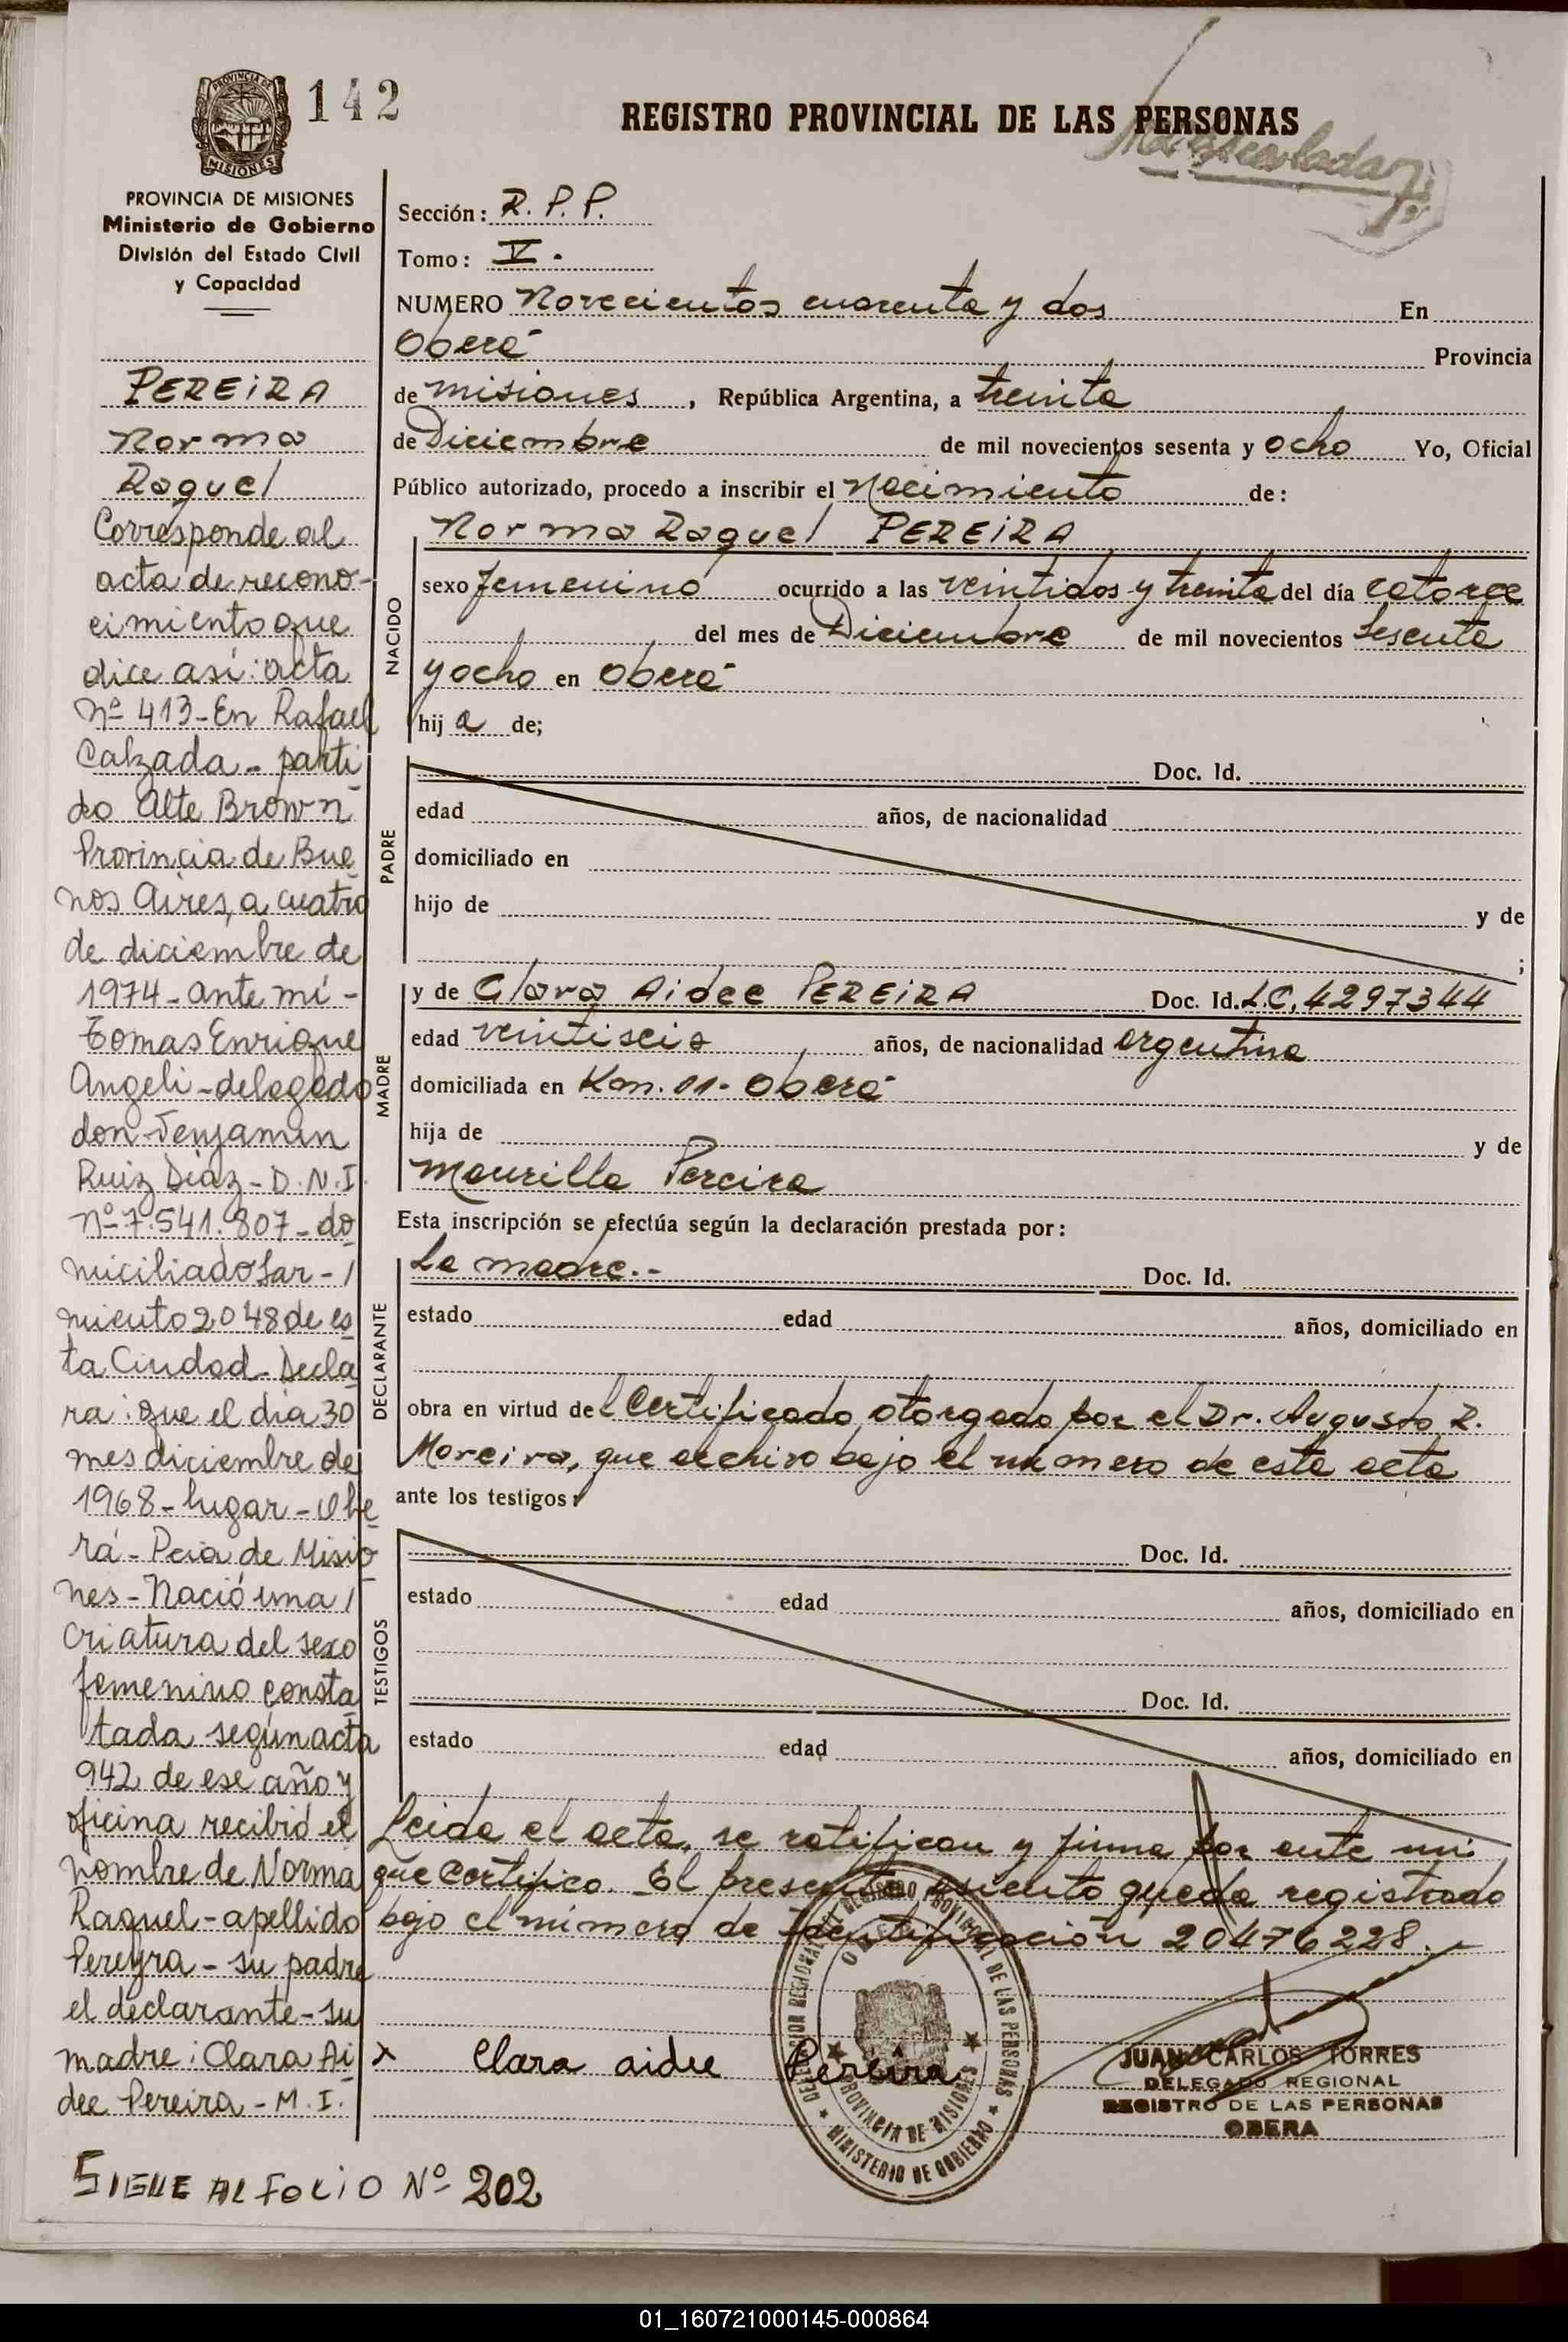 142
REGISTRO PROVINCIAL DE LAS PERSONAS
PROVINCIA DE
MISIONES
PROVINCIA DE MISIONES
Ministerio de Gobierno
División del Estado Civil
y Capacidad
PEREIRA
Norma
Raquel
Corresponde al
acta de recono-
cimiento que
dice así: acta
Nº 413-En Rafael
Calzada - parti
do Alte Brown
Provincia de Bue
nos Aires, a cuatro
de diciembre de
1974 - ante mí -
Tomas Enrique
Angeli - delegado
don Benjamin
Ruiz Diaz - D.N.I.
Nº 7.541.807 - do
miciliado Sar - /
miento 2048 de es
ta Ciudad - Decla
ra: que el día 30
mes diciembre de
1968 - lugar - Obe
rá - Pcia de Misio
nes - Nació una /
criatura del sexo
femenino consta
tada según acta
942 de ese año y
oficina recibió el
nombre de Norma
Raquel - apellido
Pereyra - su padre
el declarante - su
madre: Clara Ai
dee Pereira - M.I.
SIGUE AL FOLIO Nº 202
Sección: R.P.P.
Tomo: V.
NUMERO Novecientos cuarenta y dos En
Oberá Provincia
de Misiones, República Argentina, a treinta
de Diciembre de mil novecientos sesenta y ocho Yo, Oficial
Público autorizado, procedo a inscribir el Nacimiento de:
NACIDO
Norma Raquel PEREIRA
sexo femenino ocurrido a las veintidos y treinta del día catorce
del mes de Diciembre de mil novecientos sesenta
y ocho en Oberá
hija de;
PADRE
Doc. Id.
edad años, de nacionalidad
domiciliado en
hijo de y de
;
MADRE
y de Clara Aidee PEREIRA Doc. Id. L.C. 4297344
edad veintiseis años, de nacionalidad argentina
domiciliada en Km. 11 - Oberá
hija de y de
Maurilla Pereira
Esta inscripción se efectúa según la declaración prestada por:
DECLARANTE
La madre.-
Doc. Id.
estado edad años, domiciliado en
obra en virtud del Certificado otorgado por el Dr. Augusto R.
Moreira, que archivo bajo el número de esta acta
ante los testigos:
TESTIGOS
Doc. Id.
estado edad años, domiciliado en
Doc. Id.
estado edad años, domiciliado en
Leida el acta, se ratifican y firma por ante mi
que certifico. El presente asiento queda registrado
bajo el número de identificación 20476228.
x Clara aidee Pereira
DELEGACION REGIONAL REGISTRO PROVINCIAL DE LAS PERSONAS
PROVINCIA DE MISIONES
MINISTERIO DE GOBIERNO
JUAN CARLOS TORRES
DELEGADO REGIONAL
REGISTRO DE LAS PERSONAS
OBERA
01_160721000145-000864